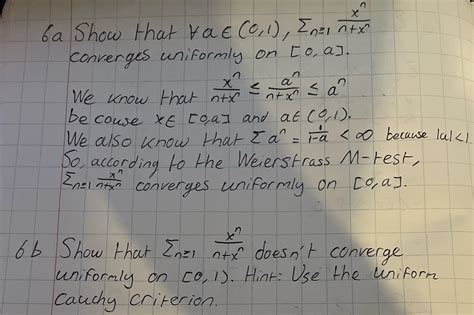 6a Show that ∀a∈(0,1), Σn=1 xⁿ/n+xⁿ
converges uniformly on [0,a].
We know that xⁿ/n+xⁿ ≤ aⁿ/n+xⁿ ≤ aⁿ
be couse x∈ [0,a] and a∈(0,1).
We also know that Σaⁿ = 1/1-a < ∞ because |a|<1.
So, according to the Weierstrass M-test,
Σn=1 xⁿ/n+xⁿ converges uniformly on [0,a].
6b Show that Σn=1 xⁿ/n+xⁿ doesn't converge
uniformly on [0,1). Hint: Use the uniform
Cauchy criterion.